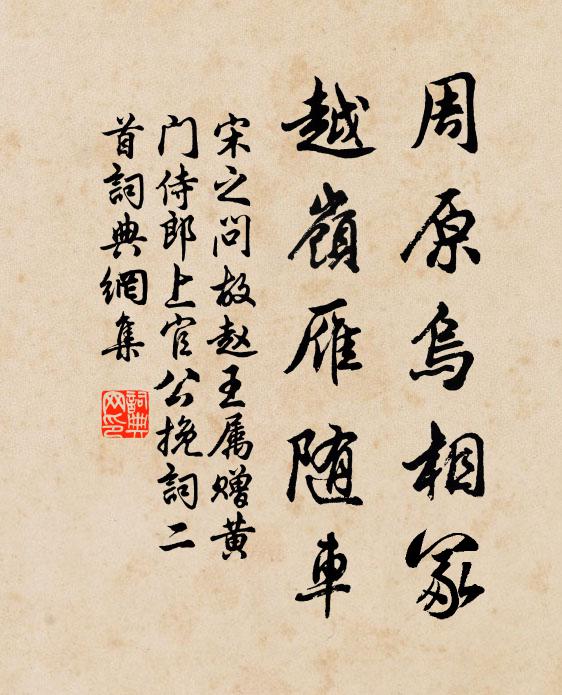 周原烏相冢
越嶺雁随車
宋之问故赵王属赠黄
门侍郎上官公挽詞二
首詞典網集
詞典网印